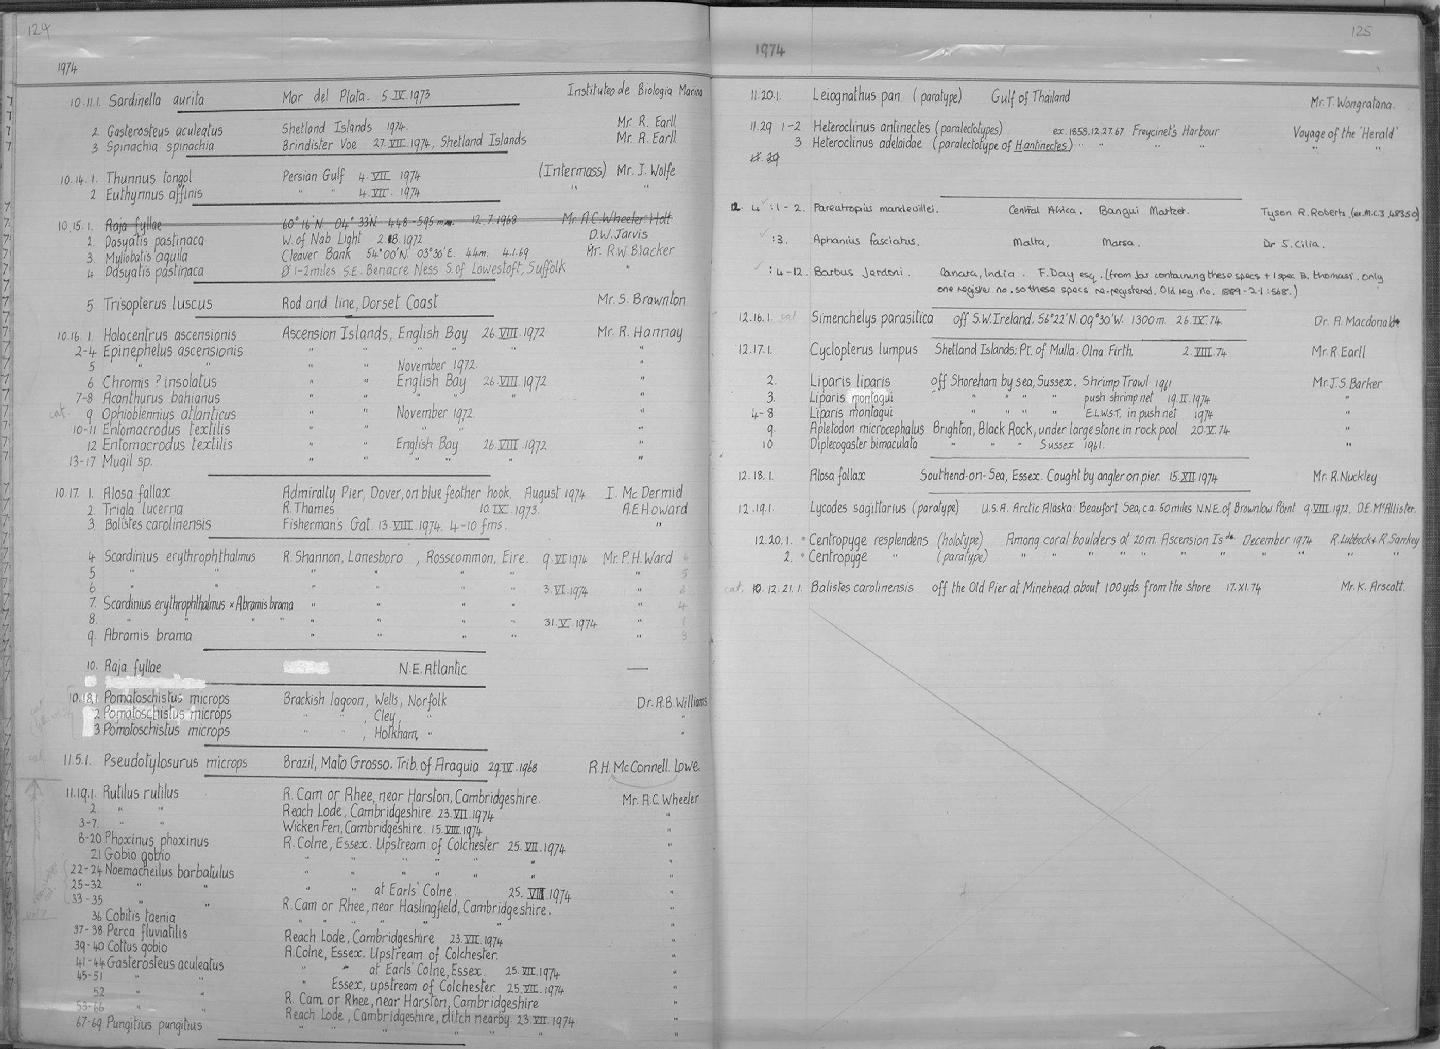 124
1974
10.11.1. Sardinella aurita Mar del Plata. 5 IV 1973 Instituteo de Biologia Marina
2 Gasterosteus aculeatus Shetland Islands 1974. Mr. R. Earll
3 Spinachia spinachia Brindister Voe 27.VII.1974, Shetland Islands Mr. R. Earll
10.14.1. Thunnus tongol Persian Gulf 4.VII 1974 (Intermass) Mr. J. Wolfe
2 Euthynnus affinis " " 4.VII.1974 " "
10.15.1. Raja fyllae 60° 16'N 04° 33N 448-595 m. 12.7.1968 Mr. A.C. Wheeler Holt
2. Dasyatis pastinaca W. of Nab Light 2.8.1972 D.W. Jarvis
3. Myliobatis aquila Cleaver Bank 54°00'N 03°30'E. 44m. 4.1.69 Mr. R.W. Blacker
4 Dasyatis pastinaca 1-2 miles S.E. Benacre Ness S. of Lowestoft, Suffolk "
5 Trisopterus luscus Rod and line, Dorset Coast Mr. S. Brawnton
10.16.1. Holocentrus ascensionis Ascension Islands, English Bay 26 VIII 1972 Mr. R. Hannay
2-4 Epinephelus ascensionis " " " " "
5 " " " " November 1972. "
6 Chromis ? insolatus " " English Bay 26 VIII 1972 "
7-8 Acanthurus bahianus " " " " "
cat. 9 Ophioblennius atlanticus " " November 1972 "
10-11 Entomacrodus textilis " " " " "
12 Entomacrodus textilis " " English Bay 26.VIII.1972 "
13-17 Mugil sp. " " " " " "
10.17. 1. Alosa fallax Admiralty Pier, Dover, on blue feather hook. August 1974 I. McDermid
2. Trigla lucerna R. Thames 10.IX.1973. A.E. Howard
3 Balistes carolinensis Fisherman's Gat. 13.VIII.1974. 4-10 fms. "
4 Scardinius erythrophthalmus R. Shannon, Lanesboro, Rosscommon, Eire. 9.VI 1974 Mr. P.H. Ward
5 " " " " " " "
6 " " " " " 3.VI.1974 "
7. Scardinius erythrophthalmus × Abramis brama " " " " "
8. " " " " " " 31.V.1974 "
9. Abramis brama " " " " "
10. Raja fyllae N.E. Atlantic —
10.18.1 Pomatoschistus microps Brackish lagoon, Wells, Norfolk Dr. R.B. Williams
2 Pomatoschistus microps " " , Cley, " "
3 Pomatoschistus microps " " , Holkham, " "
11.5.1. Pseudotylosurus microps Brazil, Mato Grosso. Trib. of Araguia 29.IV.1968 R.H. McConnell. Lowe.
11.19.1. Rutilus rutilus R. Cam or Rhee, near Harston, Cambridgeshire. Mr. A.C. Wheeler
2. " " Reach Lode, Cambridgeshire 23.VII.1974 "
3-7. " " Wicken Fen, Cambridgeshire. 15.VIII.1974 "
8-20 Phoxinus phoxinus R. Colne, Essex. Upstream of Colchester 25.VII.1974 "
21 Gobio gobio " " " " " "
22-24 Noemacheilus barbatulus " " " " " "
25-32 " " " " at Earls' Colne 25.VII.1974 "
33-35 " " R. Cam or Rhee, near Haslingfield, Cambridgeshire. "
36 Cobitis taenia " " " " " "
37-38 Perca fluviatilis Reach Lode, Cambridgeshire 23.VII.1974 "
39-40 Cottus gobio R. Colne, Essex. Upstream of Colchester. "
41-44 Gasterosteus aculeatus " " at Earls' Colne, Essex. 25.VII.1974 "
45-51 " " " Essex, upstream of Colchester. 25.VII.1974 "
52 " " R. Cam or Rhee, near Harston, Cambridgeshire "
53-66 " " Reach Lode, Cambridgeshire, ditch nearby. 23.VII.1974 "
67-69 Pungitius pungitius " " " " " "
125
1974
11.20.1. Leiognathus pan (paratype) Gulf of Thailand Mr. T. Wongratana.
11.29 1-2 Heteroclinus antinectes (paralectotypes) ex. 1858.12.27.67 Freycinet's Harbour Voyage of the 'Herald'
3 Heteroclinus adelaidae (paralectotype of H. antinectes) " " " " " "
12. 4 :1-2. Pareutropius mandevillei. Central Africa. Bangui Market. Tyson R. Roberts (ex. M.C.Z. 48350)
:3. Aphanius fasciatus. Malta, Marsa. Dr S. Cilia.
:4-12. Barbus Jerdoni. Canara, India. F. Day esq. (from Jar containing these specs + 1 spec B. thomasi. only
one register no. so these specs re-registered. Old reg. no. 1889-2-1:568.)
12.16.1. Simenchelys parasitica off S.W. Ireland. 56°22'N. 09°30'W. 1300 m. 26 IX 74 Dr. A. Macdonald
12.17.1. Cyclopterus lumpus Shetland Islands: Pt. of Mulla. Olna Firth. 2.VIII.74 Mr. R Earll
2. Liparis liparis off Shoreham by sea, Sussex. Shrimp Trawl 1961 Mr. J.S Barker
3. Liparis montagui " " " " push shrimp net 19.II.1974 "
4-8 Liparis montagui " " " " E.L.W.S.T. in push net 1974 "
9. Apletodon microcephalus Brighton, Black Rock, under large stone in rock pool 20.V.74 "
10 Diplecogaster bimaculata " " " Sussex 1961. "
12.18.1. Alosa fallax Southend-on-Sea, Essex. Caught by angler on pier. 15.VII.1974 Mr. R. Nuckley
12.19.1. Lycodes sagittarius (paratype) U.S.A. Arctic Alaska: Beaufort Sea, ca. 50 miles N.N.E. of Brownlow Point 9.VIII.1972. D.E. McAllister.
12.20.1. Centropyge resplendens (holotype) Among coral boulders at 20m. Ascension Isds. December 1974 R. Lubbock & R. Sankey
2. Centropyge " (paratype) " " " " " " " " "
cat. 12.21.1. Balistes carolinensis off the Old Pier at Minehead about 100yds. from the shore 17.XI.74 Mr. K. Arscott.